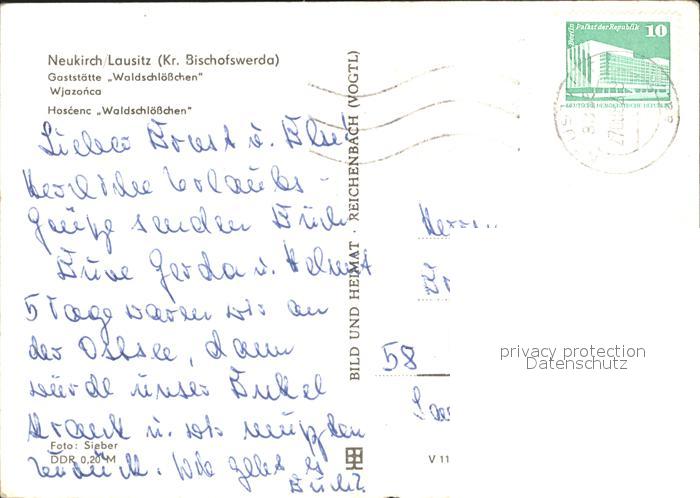 Neukirch/Lausitz (Kr. Bischofswerda)
Gaststätte „Waldschlößchen"
Wjazońca
Hosćenc „Waldschlößchen"
Lieber Ernst u. Else!
Herzliche Urlaubs-
grüße senden Euch
Eure Gerda u. Helmut
5 Tage waren wir an
der Ostsee, dann
wurde unser Enkel
krank u. wir mußten
zurück. Wie geht es
Euch?
Foto: Sieber
DDR 0,20 M
BILD UND HEIMAT · REICHENBACH (VOGTL)
V 11
Berlin Palast der Republik
10
DEUTSCHE DEMOKRATISCHE REPUBLIK
58
privacy protection
Datenschutz